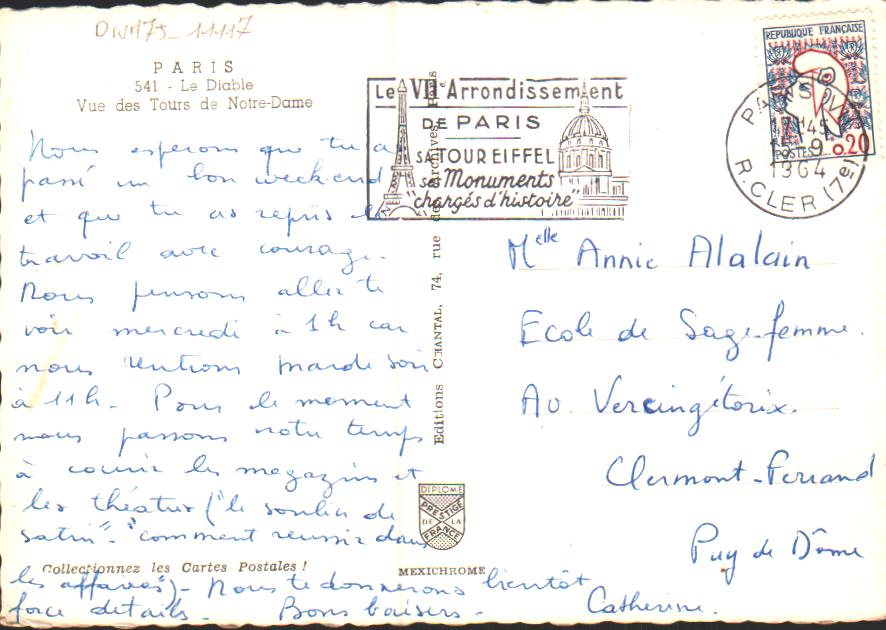 DN175_11117
PARIS
541 - Le Diable
Vue des Tours de Notre-Dame
Nous esperons que tu as
passé un bon week-end
et que tu as repris le
travail avec courage.
Nous pensons aller te
voir mercredi à 1h car
nous rentrons mardi soir
à 11h. Pour le moment
nous passons notre temps
à courir les magazins et
les théatres ("le soulier de
satin". "comment reussir dans
les affaires") - Nous te donnerons bientôt
force details. Bons baisers.
Catherine.
Collectionnez les Cartes Postales !
MEXICHROME
Editions CHANTAL, 74, rue des Archives Paris
DIPLOME
PRESTIGE
DE LA
FRANCE
Le VIIe Arrondissement
DE PARIS
SA TOUR EIFFEL
ses Monuments
"chargés d'histoire"
REPUBLIQUE FRANÇAISE
POSTES 0,20
PARIS
17H45
-9
1964
R.CLER (7e)
Melle Annie Alalain
Ecole de Sage-femme.
Av. Vercingétorix.
Clermont-Ferrand
Puy de Dôme